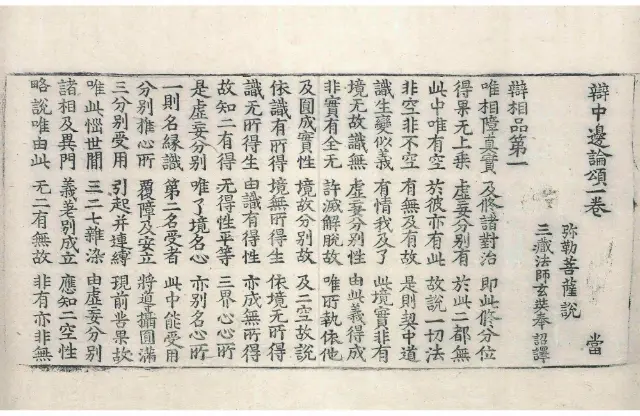 辯中邊論頌一卷
弥勒菩薩說 當
三藏法師玄奘奉 詔譯
辯相品第一
唯相障真實 及修諸對治 即此修分位
得果无上乘 虛妄分別有 於此二都無
此中唯有空 於彼亦有此 故說一切法
非空非不空 有無及有故 是則契中道
識生變似義 有情我及了 此境實非有
境无故識無 虛妄分別性 由此義得成
非實有全无 許滅解脫故 唯所執依他
及圓成實性 境故分別故 及二空故說
依識有所得 境無所得生 依境无所得
識无所得生 由識有得性 亦成無所得
故知二有得 无得性平等 三界心心所
是虛妄分別 唯了境名心 亦別名心所
一則名緣識 第二名受者 此中能受用
分別推心所 覆障及安立 將導攝圓滿
三分別受用 引起并連縛 現前苦果故
唯此惱世間 三二七雜染 由虛妄分別
諸相及異門 義差別成立 應知二空性
略說唯由此 无二有無故 非有亦非無